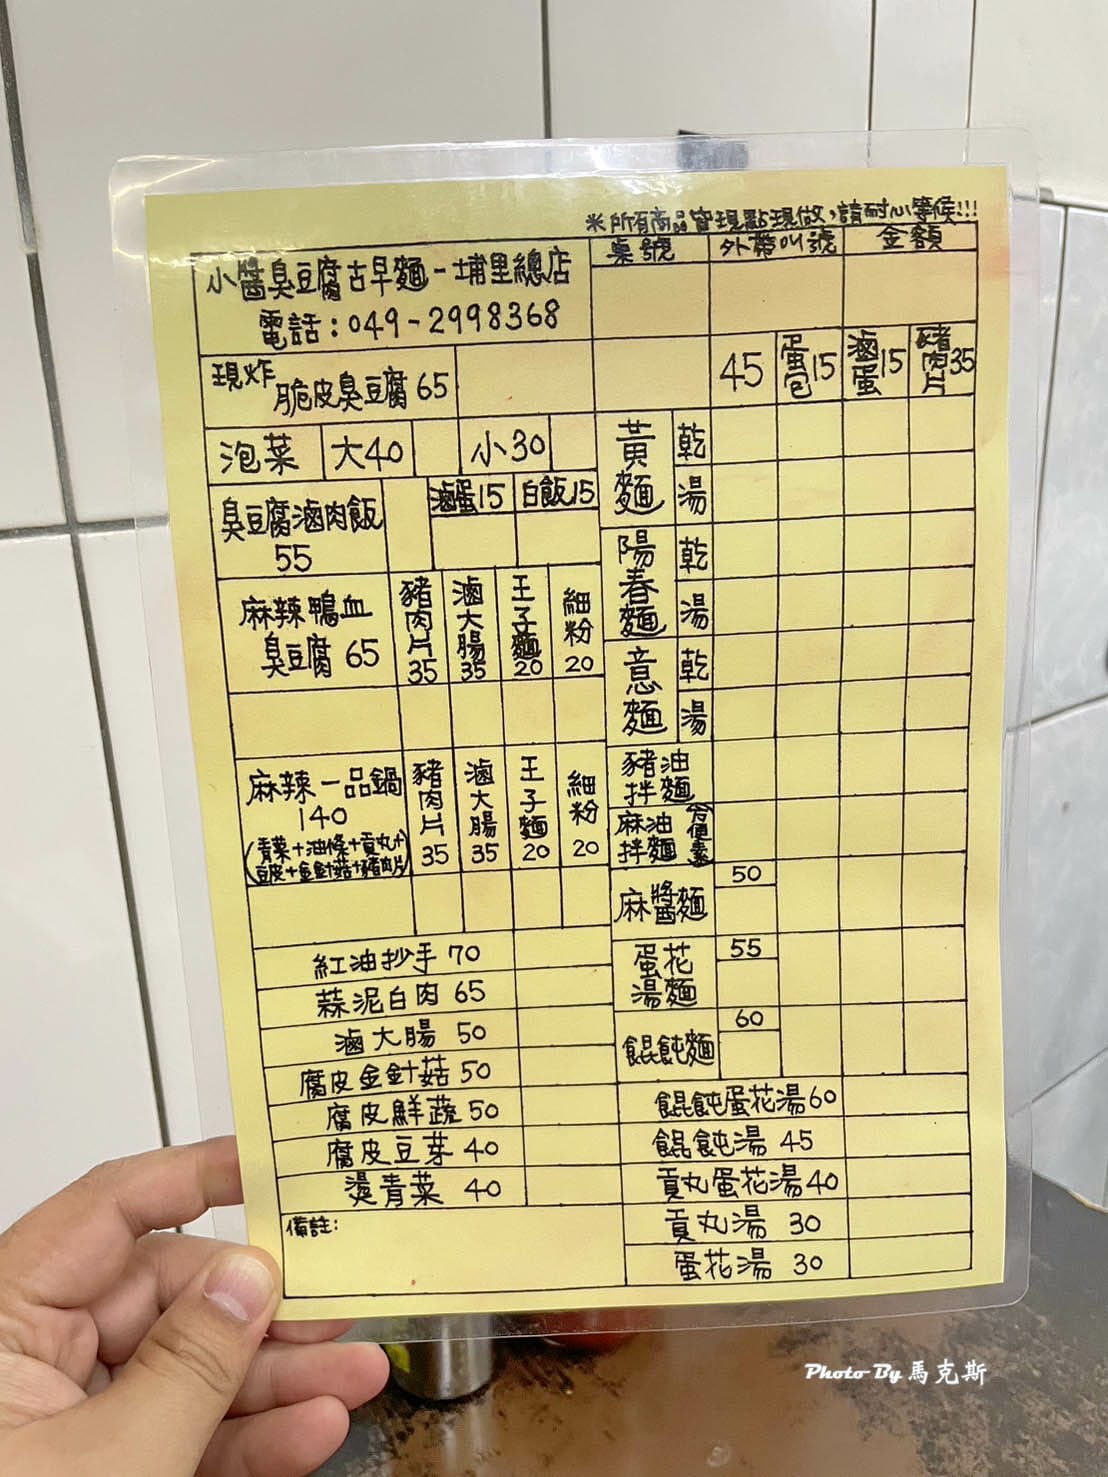 ※所有商品皆現點現做,請耐心等候!!!
小醬臭豆腐古早麵-埔里總店
電話:049-2998368
桌號 外帶叫號 金額
現炸 脆皮臭豆腐 65
泡菜 大40 小30
臭豆腐滷肉飯
55
滷蛋15 白飯15
麻辣鴨血
臭豆腐 65
豬肉片 35
滷大腸 35
王子麵 20
細粉 20
麻辣一品鍋
140
(青菜+油條+貢丸+
豆皮+金針菇+豬肉片)
豬肉片 35
滷大腸 35
王子麵 20
細粉 20
紅油抄手 70
蒜泥白肉 65
滷大腸 50
腐皮金針菇 50
腐皮鮮蔬 50
腐皮豆芽 40
燙青菜 40
備註:
45 蛋包15 滷蛋15 豬肉片35
黃麵 乾 湯
陽春麵 乾 湯
意麵 乾 湯
豬油
拌麵
麻油
拌麵 方便素
麻醬麵 50
蛋花
湯麵 55
餛飩麵 60
餛飩蛋花湯60
餛飩湯 45
貢丸蛋花湯40
貢丸湯 30
蛋花湯 30
Photo By 馬克斯